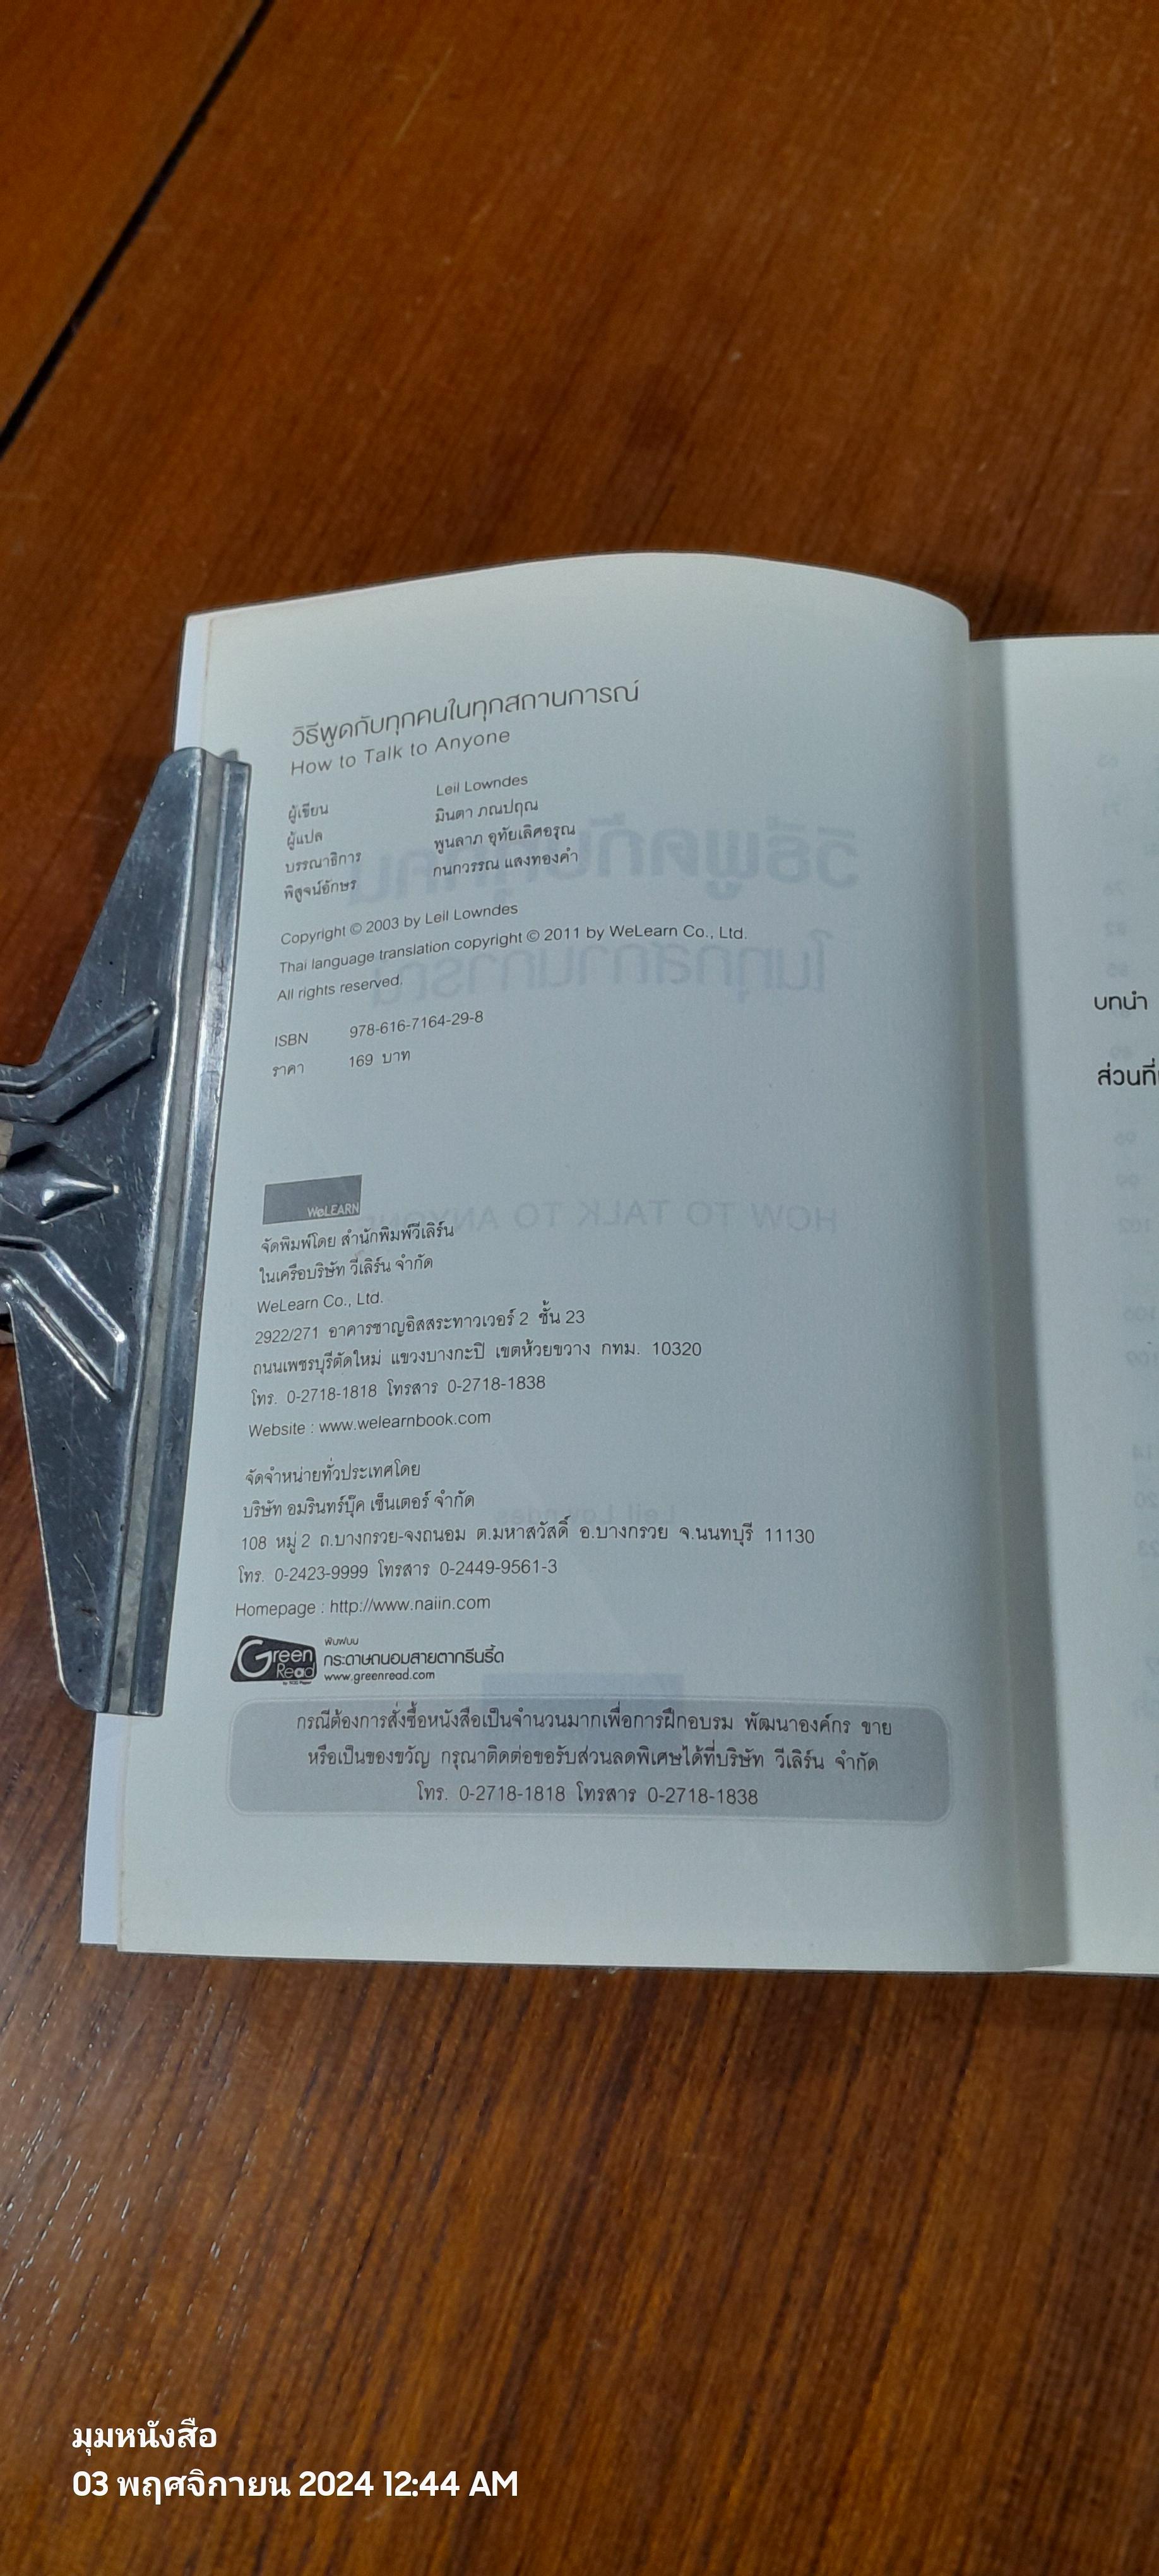 วิธีพูดกับทุกคนในทุกสถานการณ์
How to Talk to Anyone
ผู้เขียน Leil Lowndes
ผู้แปล มินตา ภณปฤณ
บรรณาธิการ พูนลาภ อุทัยเลิศอรุณ
พิสูจน์อักษร กนกวรรณ แสงทองคำ
Copyright © 2003 by Leil Lowndes
Thai language translation copyright © 2011 by WeLearn Co., Ltd.
All rights reserved.
ISBN 978-616-7164-29-8
ราคา 169 บาท
WeLEARN
จัดพิมพ์โดย สำนักพิมพ์วีเลิร์น
ในเครือบริษัท วีเลิร์น จำกัด
WeLearn Co., Ltd.
2922/271 อาคารชาญอิสสระทาวเวอร์ 2 ชั้น 23
ถนนเพชรบุรีตัดใหม่ แขวงบางกะปิ เขตห้วยขวาง กทม. 10320
โทร. 0-2718-1818 โทรสาร 0-2718-1838
Website : www.welearnbook.com
จัดจำหน่ายทั่วประเทศโดย
บริษัท อมรินทร์บุ๊ค เซ็นเตอร์ จำกัด
108 หมู่ 2 ถ.บางกรวย-จงถนอม ต.มหาสวัสดิ์ อ.บางกรวย จ.นนทบุรี 11130
โทร. 0-2423-9999 โทรสาร 0-2449-9561-3
Homepage : http://www.naiin.com
Green Read
พิมพ์บน
กระดาษถนอมสายตากรีนรี้ด
www.greenread.com
กรณีต้องการสั่งซื้อหนังสือเป็นจำนวนมากเพื่อการฝึกอบรม พัฒนาองค์กร ขาย
หรือเป็นของขวัญ กรุณาติดต่อขอรับส่วนลดพิเศษได้ที่บริษัท วีเลิร์น จำกัด
โทร. 0-2718-1818 โทรสาร 0-2718-1838
บทนำ
ส่วนที่
มุมหนังสือ
03 พฤศจิกายน 2024 12:44 AM